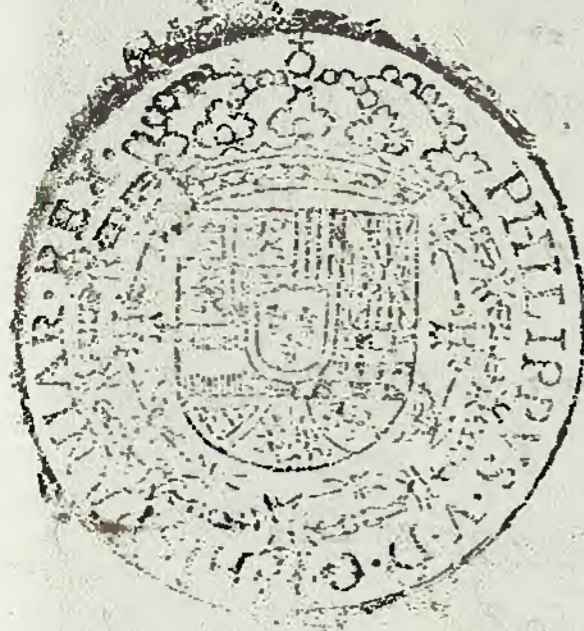 PHILIPPVS·V·D·G· REX·